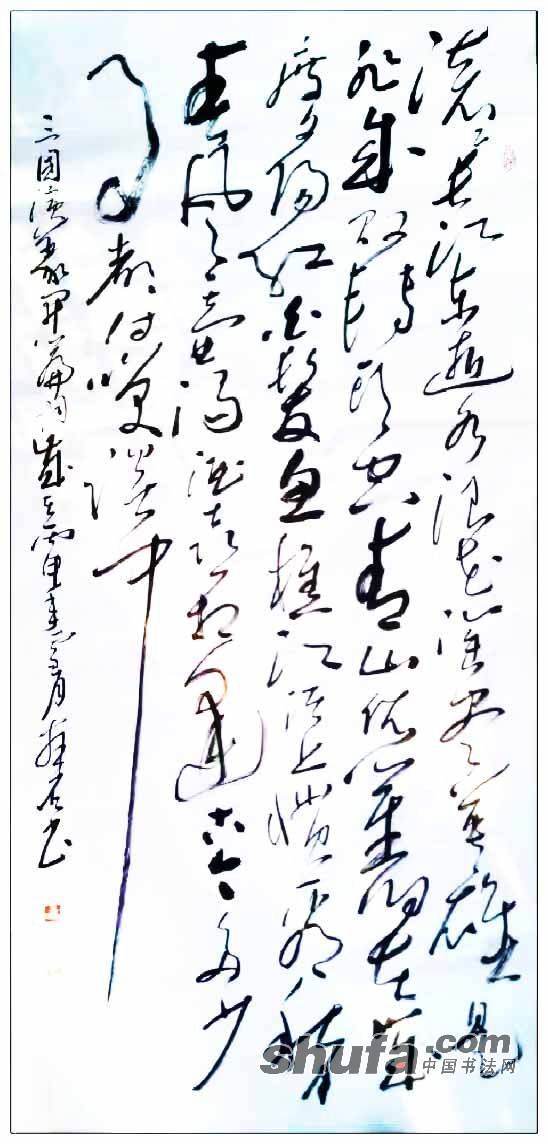 滚滚长江東逝水浪花淘尽英雄是
非成败转头空青山依旧在几
度夕阳红白发渔樵江渚上惯看秋月
春风一壶浊酒喜相逢古今多少
事都付笑谈中
三国演義开篇词岁在申春月书
shufa.com
中国书法网